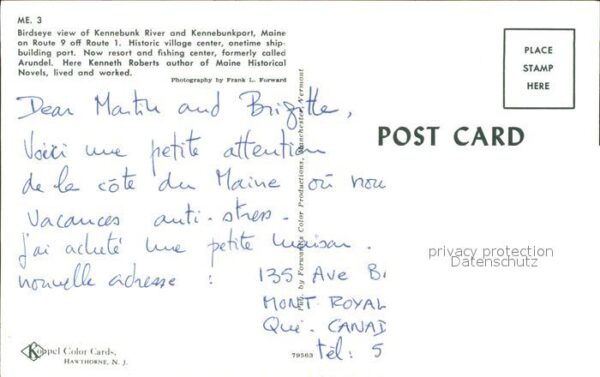 ME. 3
Birdseye view of Kennebunk River and Kennebunkport, Maine
on Route 9 off Route 1. Historic village center, onetime ship-
building port. Now resort and fishing center, formerly called
Arundel. Here Kenneth Roberts author of Maine Historical
Novels, lived and worked.
Photography by Frank L. Forward
Dear Martin and Brigitte,
Voici une petite attention
de la côte du Maine où nou
vacances anti-stress.
j'ai acheté une petite maison.
nouvelle adresse :
135 Ave B
MONT ROYAL
Qué. CANAD
tél: 5
Koppel Color Cards,
HAWTHORNE, N. J.
79563
Pub. by Forward's Color Productions, Manchester, Vermont
POST CARD
PLACE
STAMP
HERE
privacy protection
Datenschutz